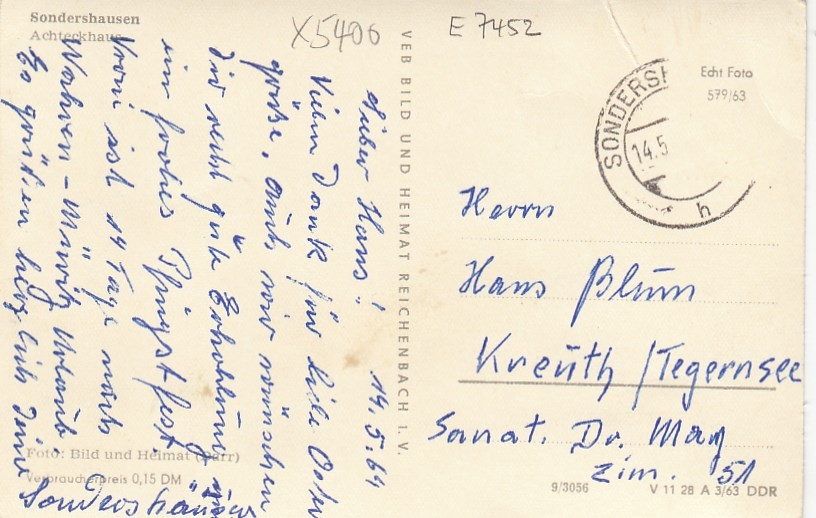 Sondershausen
Achteckhaus
X5406
E 7452
Echt Foto
579/63
SONDERSH
14.5
h
VEB BILD UND HEIMAT REICHENBACH I. V.
14.5.64
Lieber Hans!
Vielen Dank für liebe Oster
grüße, auch wir wünschen
Dir recht gute Erholung und
ein frohes Pfingstfest
Vroni ist 14 Tage nach
Wahren-Müritz Urlaub
Es grüßen herzlich Deine
Sondershäuser
Herrn
Hans Blum
Kreuth/Tegernsee
Sanat. Dr. May
Zim. 51
Foto: Bild und Heimat (Darr)
Verbraucherpreis 0,15 DM
9/3056
V 11 28 A 3/63 DDR